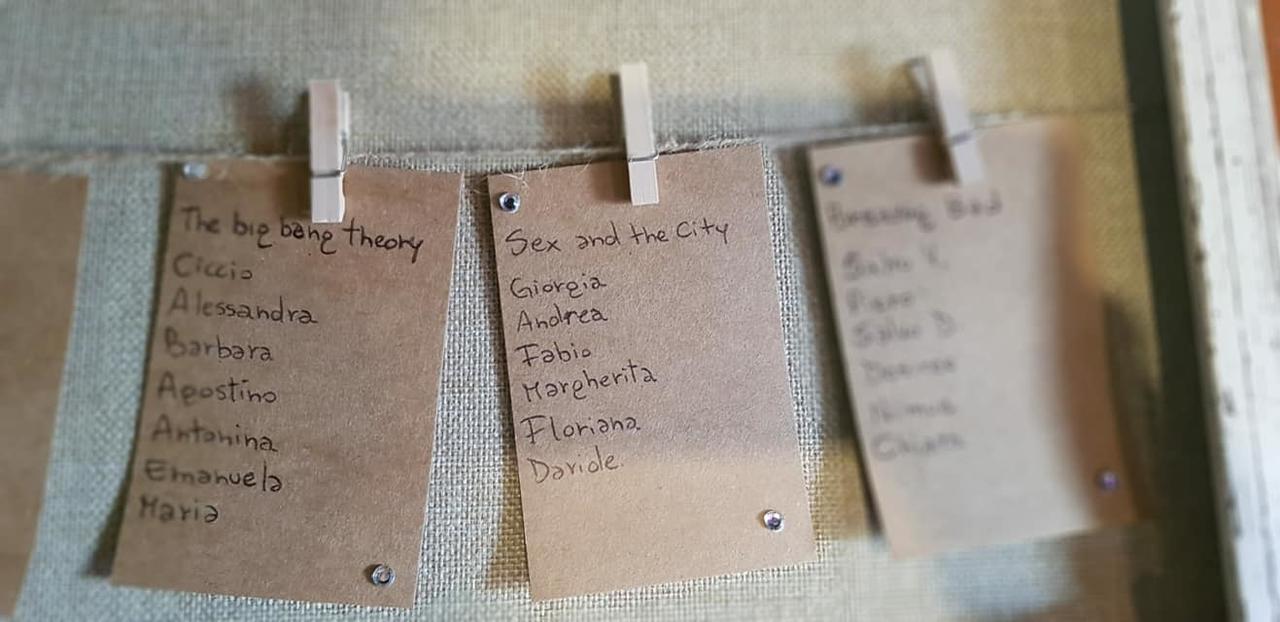 The big bang theory
Ciccio
Alessandra
Barbara
Agostino
Antonina
Emanuela
Maria
Sex and the City
Giorgia
Andrea
Fabio
Margherita
Floriana
Davide.
Breaking Bad
Salvo V.
Salvo D.
Chiara